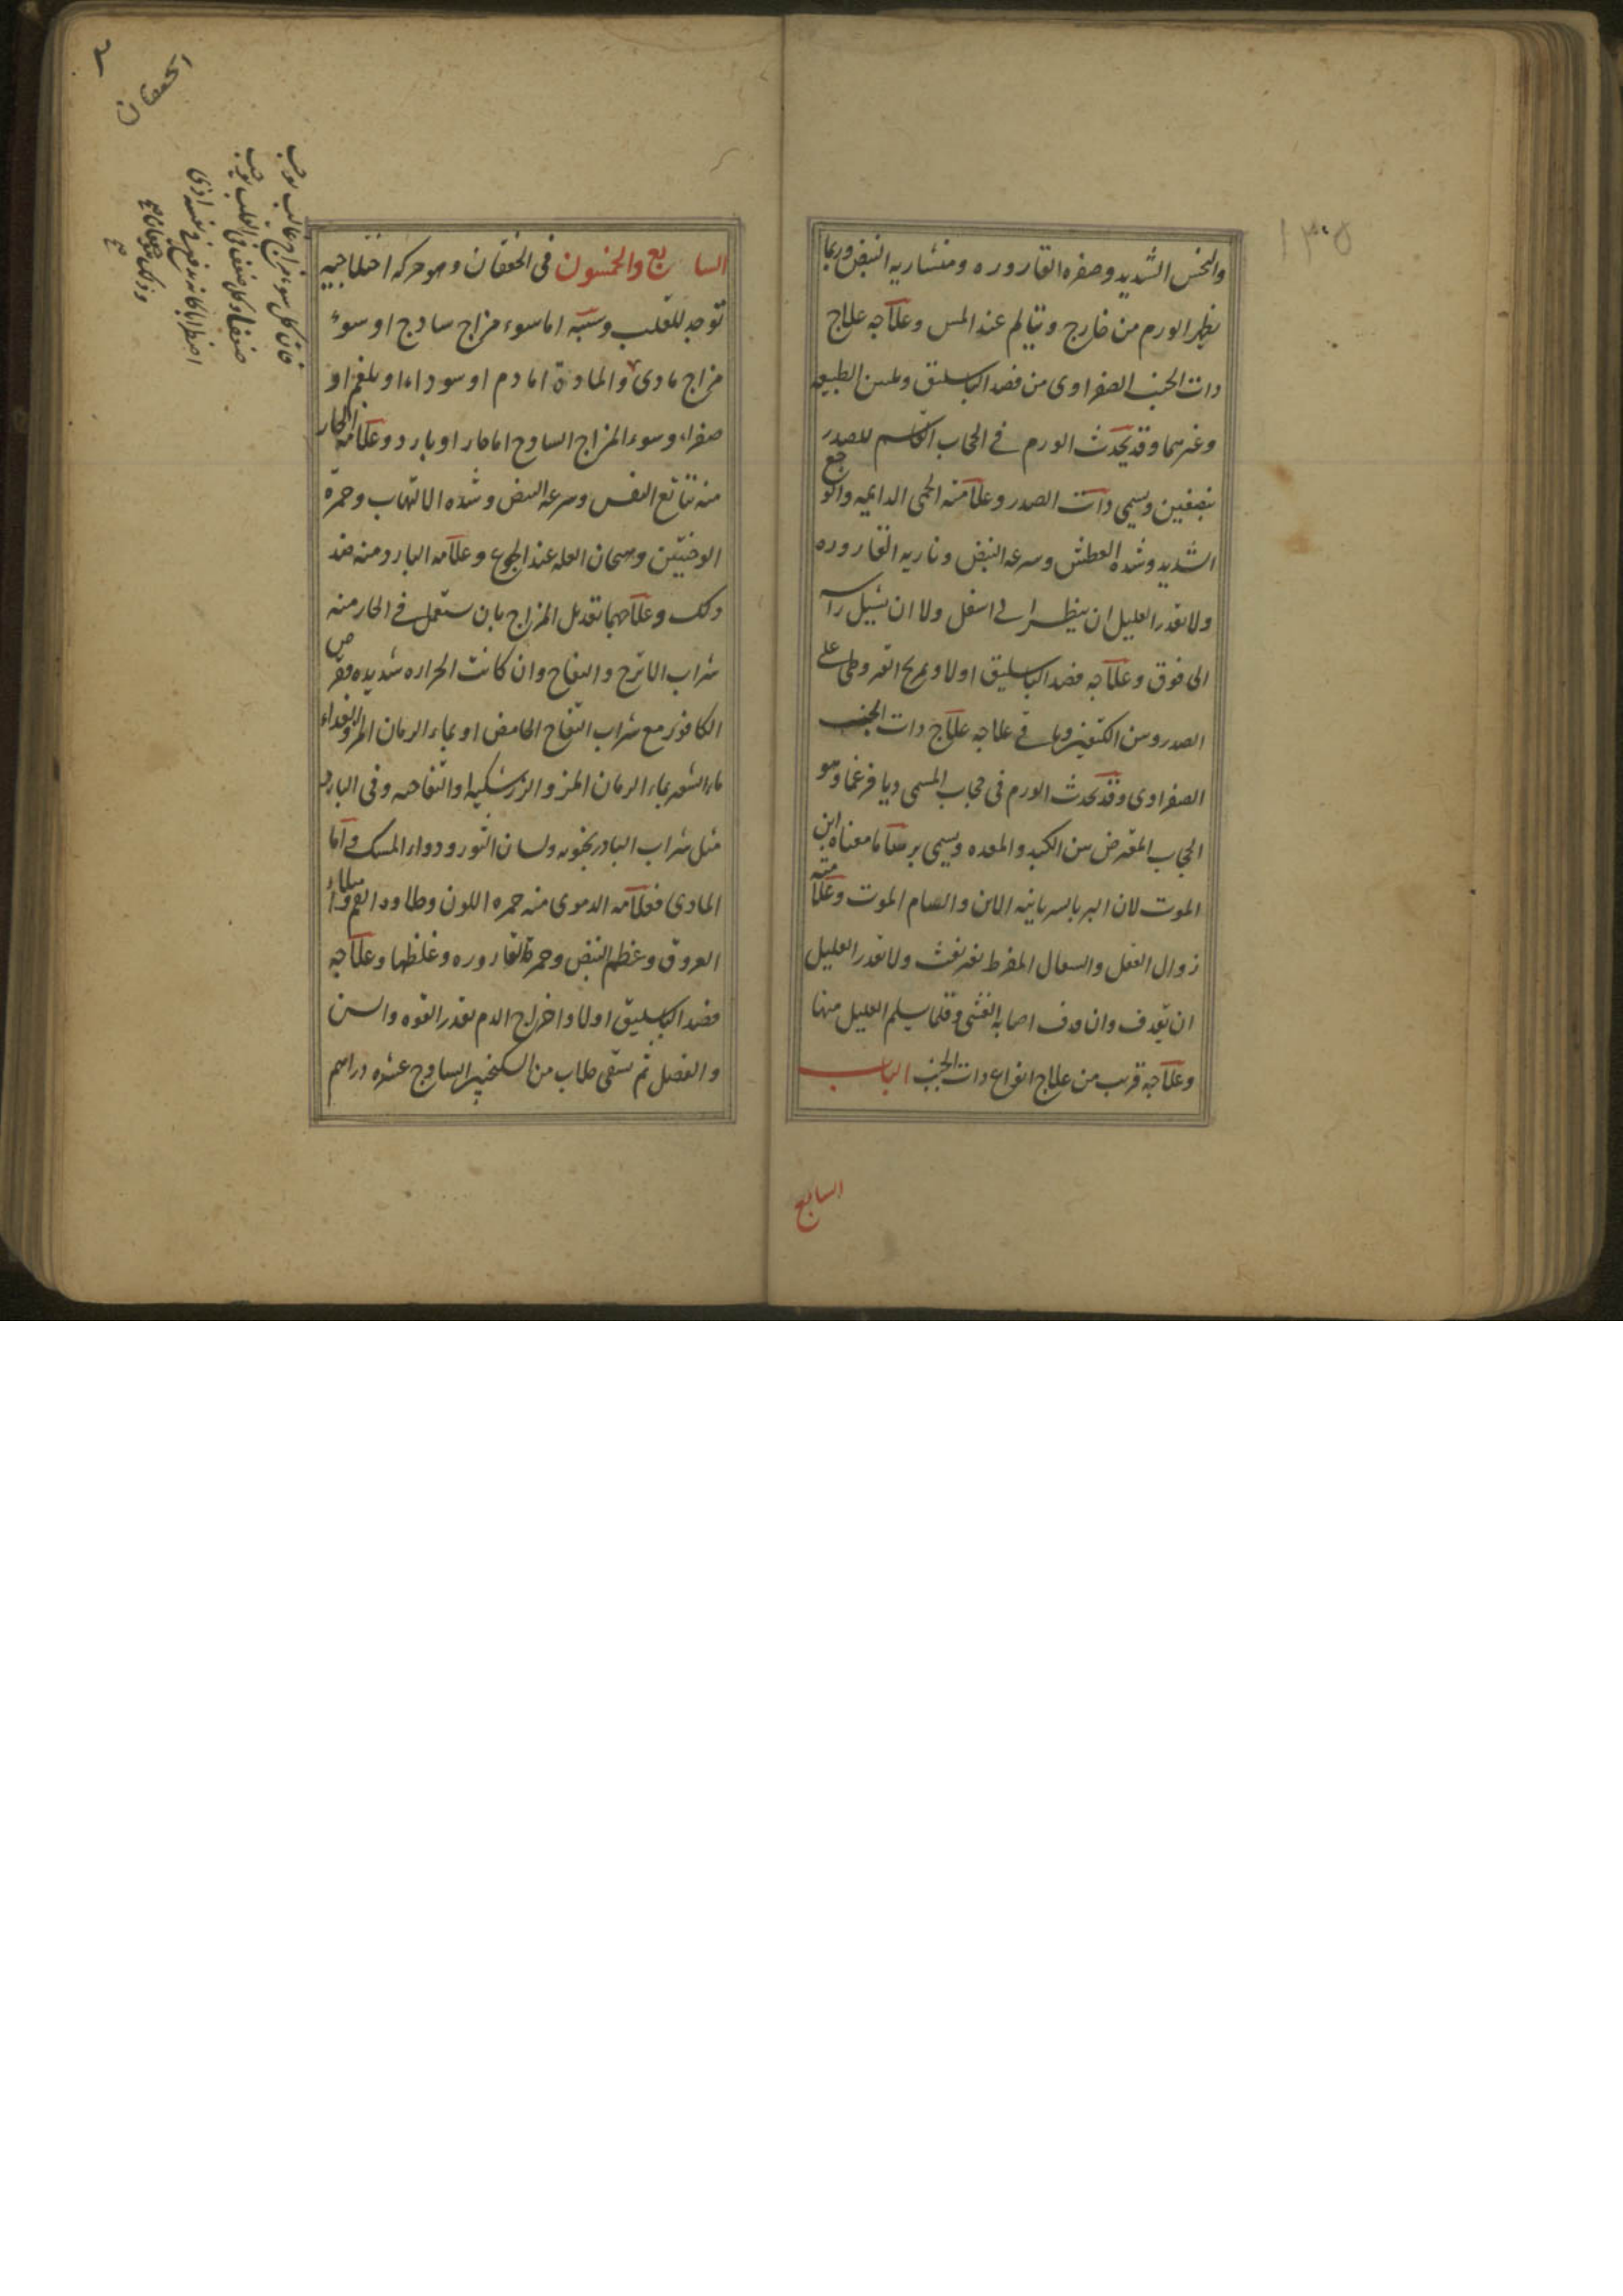 والنخس الشديد وصفره القاروره ومنشاريه النبض وربما
يظهر الورم من خارج ويتالم عند المس وعلاجه علاج
ذات الجنب الصفراوى من فصد الباسليق وتليين الطبيعه
وغيرهما وقد يحدث الورم فى الحجاب القاسم للصدر
بنصفين ويسمى ذات الصدر وعلامته الحمى الدايمه والوجع
الشديد وشده العطش وسرعه النبض وناريه القاروره
ولا يقدر العليل ان ينظر الى اسفل ولا ان يشيل راسه
الى فوق وعلاجه فصد الباسليق اولا وتمريخ القيروطى على
الصدر وبين الكتفين وباقى علاجه علاج ذات الجنب
الصفراوى وقد يحدث الورم فى حجاب المسمى ديافرغما وهو
الحجاب المعترض بين الكبد والمعده ويسمى برسام معناه ابن
الموت لان البر بالسريانيه الابن والسام الموت وعلامته
زوال العقل والسعال المفرط بغير نفث ولا يقدر العليل
ان يقذف وان قذف اصابه الغشى وقلما يسلم العليل منها
وعلاجه قريب من علاج انواع ذات الجنب الباب
السابع
السابع والخمسون فى الخفقان وهو حركه اختلاجيه
توجد للقلب وسببه اما سوء مزاج ساذج او سوء
مزاج مادى والمادة اما دم او سوداء او بلغم او
صفراء وسوء المزاج الساذج اما حار او بارد وعلامه الحار
منه تتابع النفس وسرعه النبض وشده الالتهاب وحمرة
الوجنتين وهيجان العله عند الجوع وعلامه البارد منه ضد
ذلك وعلاجهما تعديل المزاج بان يستعمل فى الحار منه
شراب الاترج والتفاح وان كانت الحراره شديده فقرص
الكافور مع شراب التفاح الحامض او بماء الرمان المز والغداء
ماء الشعير بماء الرمان المز والزرشكيه او التفاحيه وفى البارد
مثل شراب البادرنجبويه ولسان الثور ودواء المسك واما
المادى فعلامه الدموى منه حمره اللون وحلاوه الفم وامتلاء
العروق وعظم النبض وحمرة القاروره وغلظها وعلاجه
فصد الباسليق اولا واخراج الدم بقدر القوه والسن
والفصل ثم يسقى جلاب من السكنجبين الساذج عشره دراهم
الخفقان
فان كل سوء مزاج غالب يوجب
ضعفا وكل ضعف فى القلب يوجب
اضطرابا كانه يدفع عن نفسه اذى
وذلك خفقان صح
١٣٥